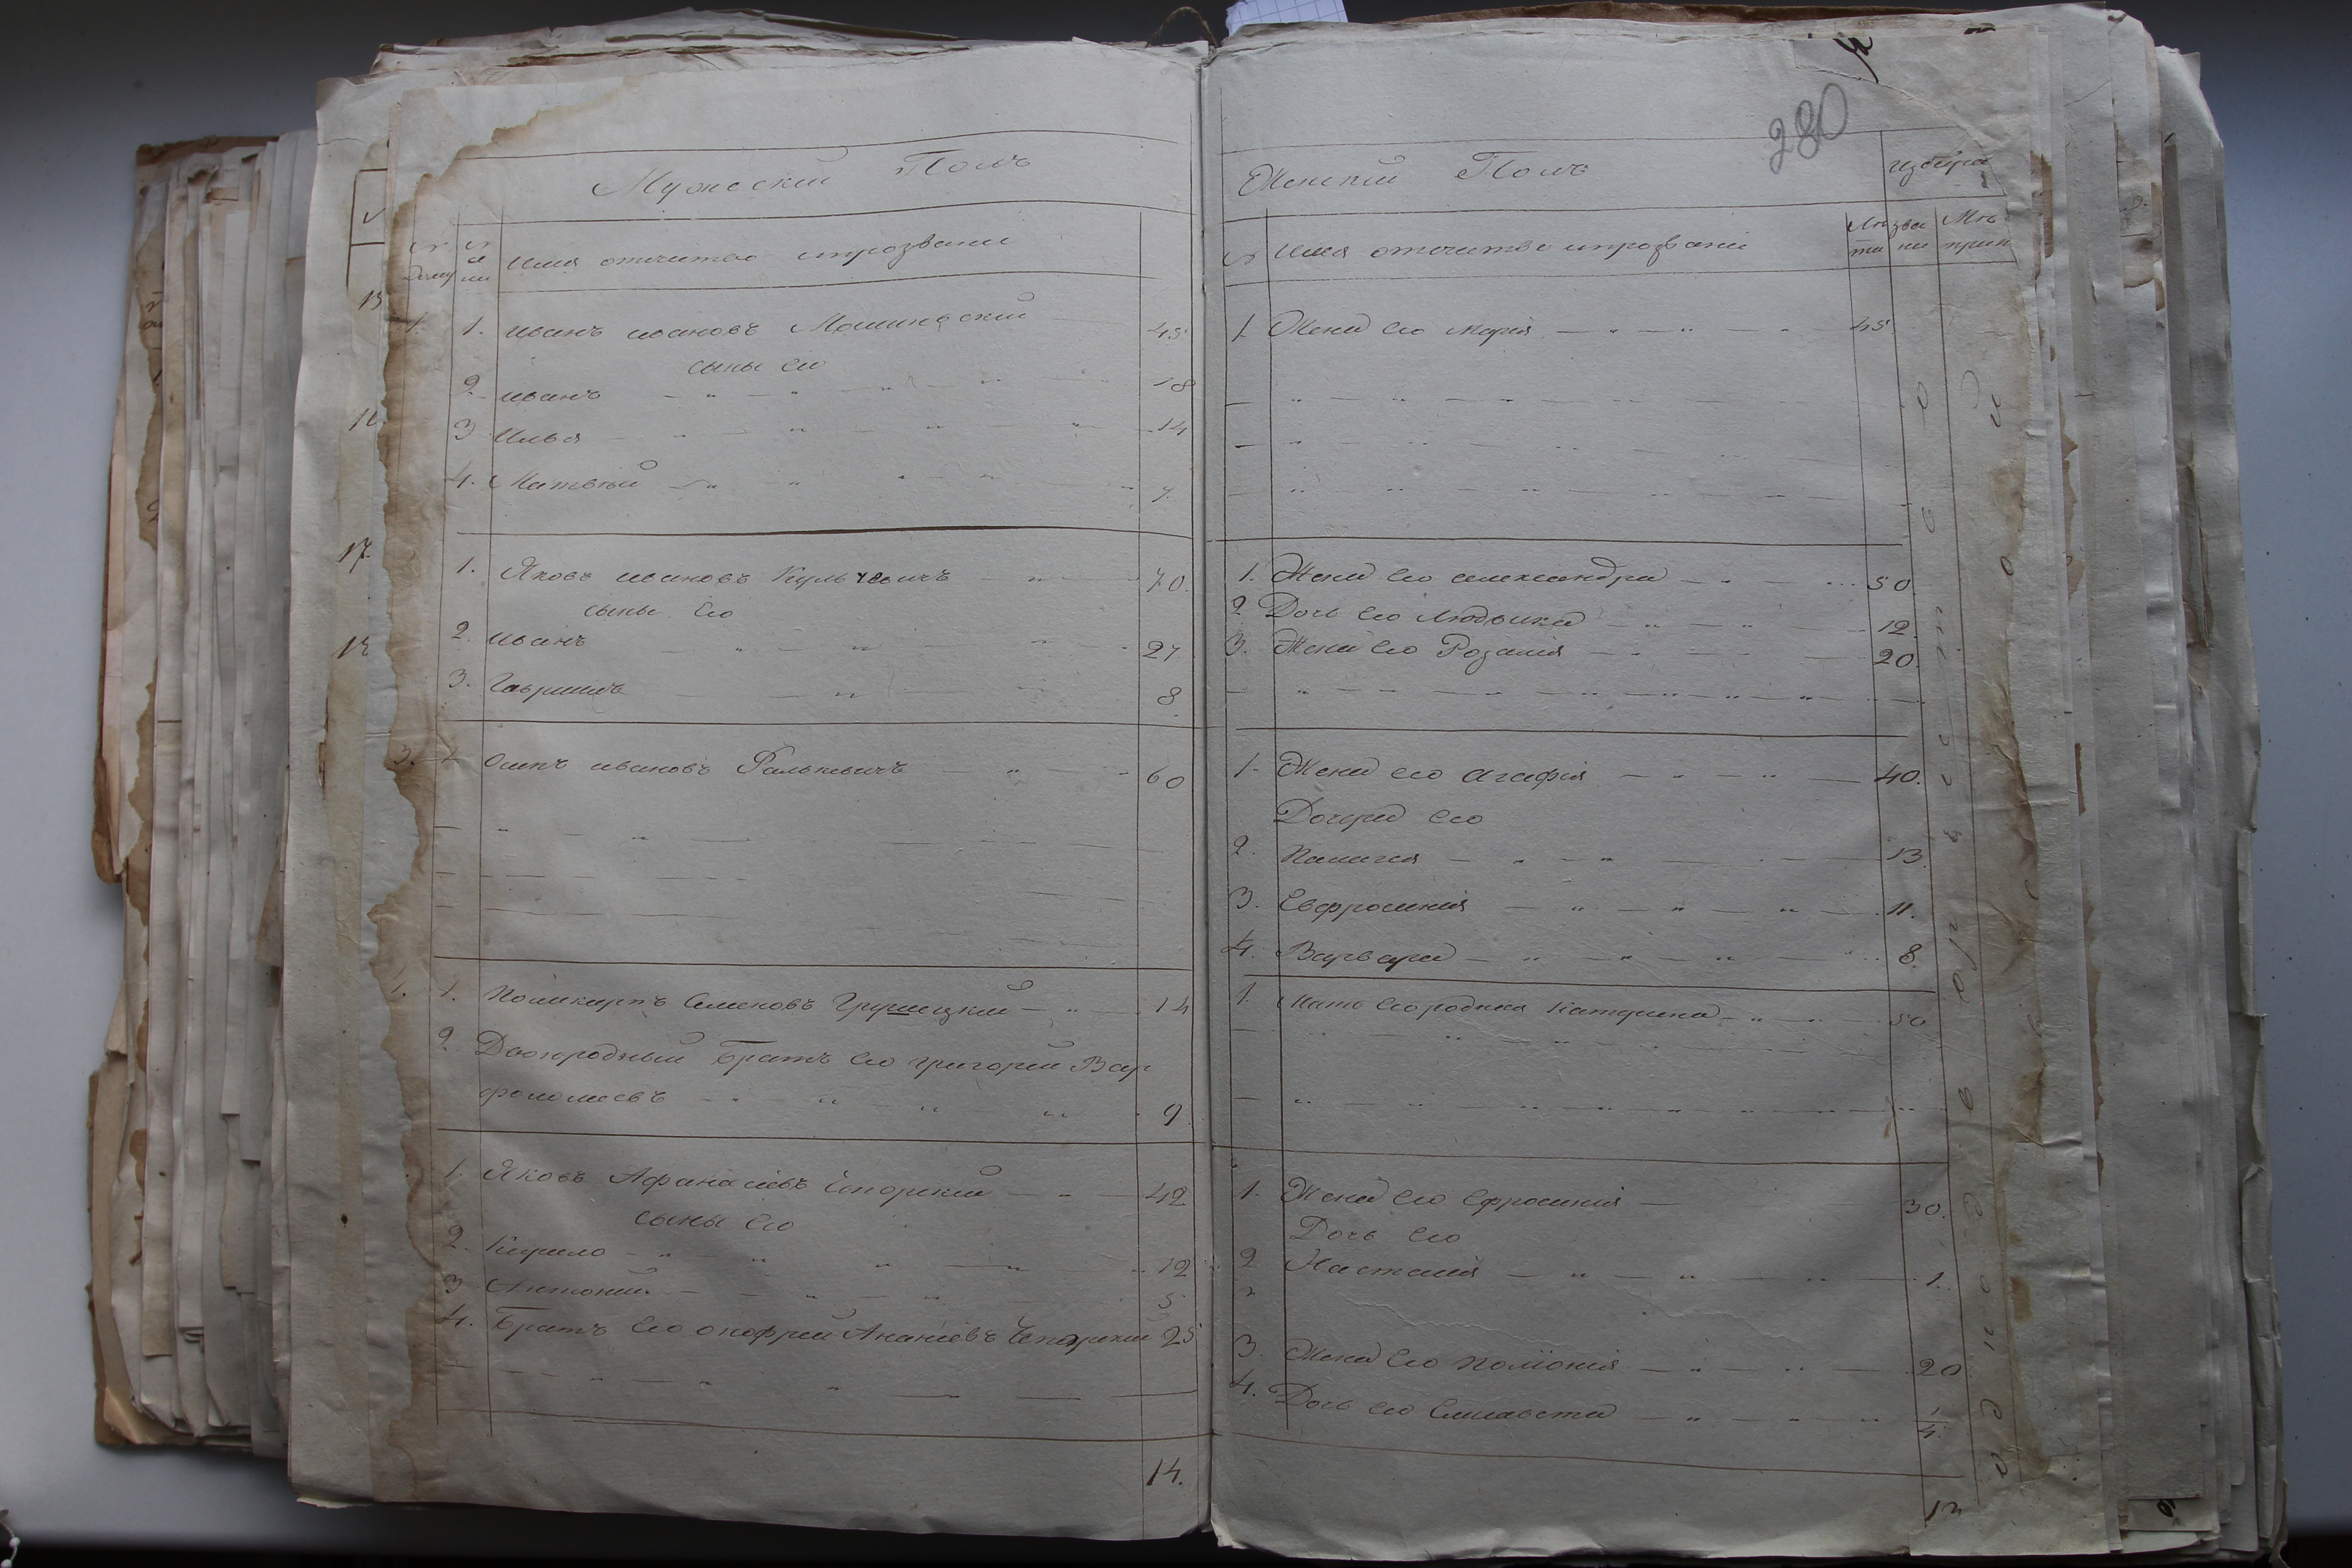 280
Мужеский Полъ
Имя отечество ипрозвание
1. 1. Иванъ Ивановъ 45
сыны Его
2. Иванъ 18
3 Илья 14
4. Матвѣй 7.
1. Яковъ Ивановъ 70.
сыны Его
2. Иванъ 27
3. Гаврiилъ 8
3. 1 Осипъ Ивановъ Фалькевичъ 60
1. 1. Поликарпъ Семеновъ Грушецкий 14
2. Двоюродный Братъ Его Григорей Вар
фоломеевъ 9
1. Яковъ Афанасiевъ 42
сыны Его
2. Кирило 12
3 Антоний 5
4. Братъ Его Онофрей Ананiевъ 25
14.
Женский Полъ
№ Имя отечество ипрозванiе
Лѣта
1. Жена Его Марiя 45
1. Жена Его Александра 50
2 Дочь Его Людвика 12.
3. Жена Его Розалiя 20.
1. Жена его Агафiя 40.
Дочери Его
2. Палагея 13
3. Евфросинiя 11.
4. Варвара 8.
1. Мать Его родная Катерина 50
1. Жена Его Ефросинiя 30.
Дочь Его
2 Насталiя 1.
3. Жена Его Полiонiя 20
4. Дочь Его Елисавета 1/4
13
15
16
17